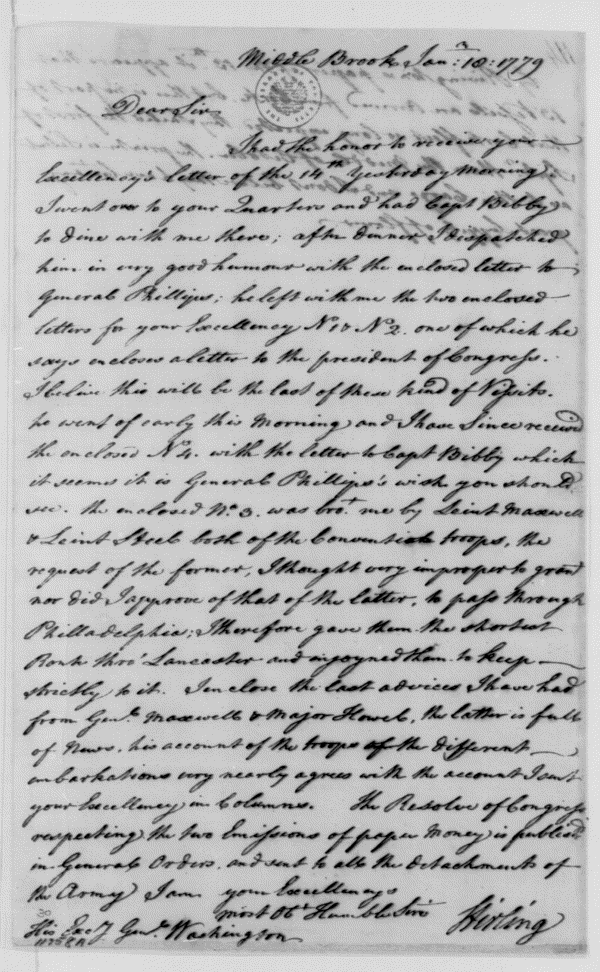 Middle Brook Jan: 18: 1779
Dear Sir
I had the honor to receive your
Excellency's letter of the 14th Yesterday Morning.
I went over to your Quarters and had Capt Bibby
to dine with me there; after dinner I dispatched
him in very good humour with the enclosed letter to
General Phillips; he left with me the two enclosed
letters for your Excellency No 1 & No 2. one of which he
says encloses a letter to the president of Congress.
I belive this will be the last of these kind of Vissits.
he went of early this Morning and I have Since received
the enclosed No 4. with the letter to Capt Bibby which
it seems it is General Phillips's wish you should
see. the enclosed No. 3. was brot. me by Leint Maxwell
& Leint Steel both of the Convention troops, the
request of the former, I thought very improper to grant
nor did I approve of that of the latter, to pass through
Philladelphia; I therefore gave them the shortest
Rout thro' Lancaster and injoyned them to keep
strictly to it. I enclose the last advices I have had
from Genl. Maxwell & Major Howel, the latter is full
of News. his account of the troops of the different
embarkations very nearly agrees with the account I sent
your Excellency in Columns. The Resolve of Congress
respecting the two Emissions of paper Money is publisd
in General Orders. and sent to all the detachments of
the Army I am your Excellencys
most Obt Humble Sirt
Stirling
His Excy Genl. Washington